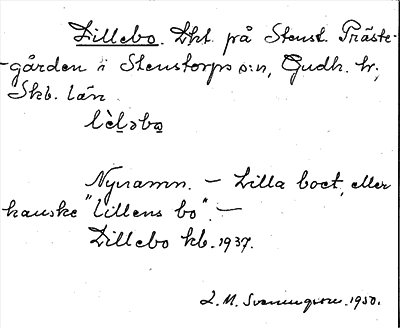 Lillebo. Lht. på Stenst. Präste-
-gården i Stenstorps s:n, Gudh. hr;
Skb. län.
lìl̲əbo̲
Nynamn. – Lilla boet, eller
kanske "Lillens bo". –
Lillebo kb. 1937.
L. M. Svenungsson. 1950.